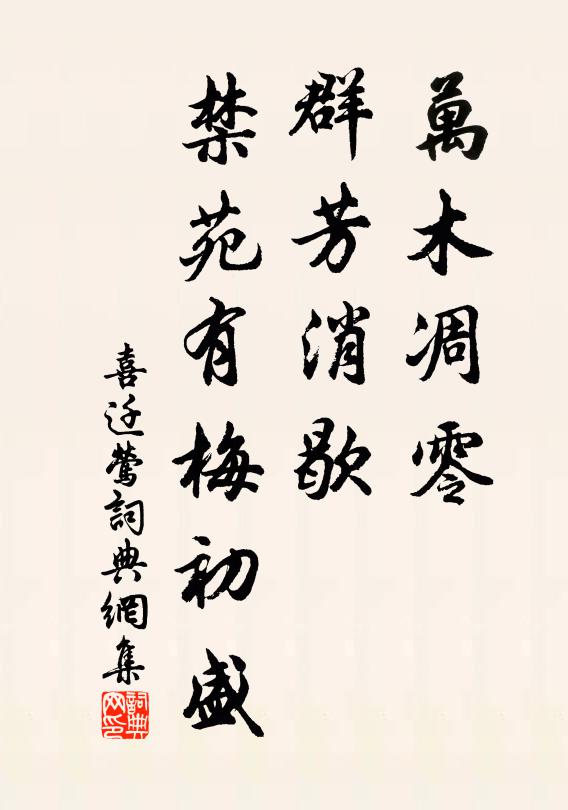 萬木凋零
群芳消歇
禁苑有梅初盛
喜迁鶯詞典網集
詞典網印